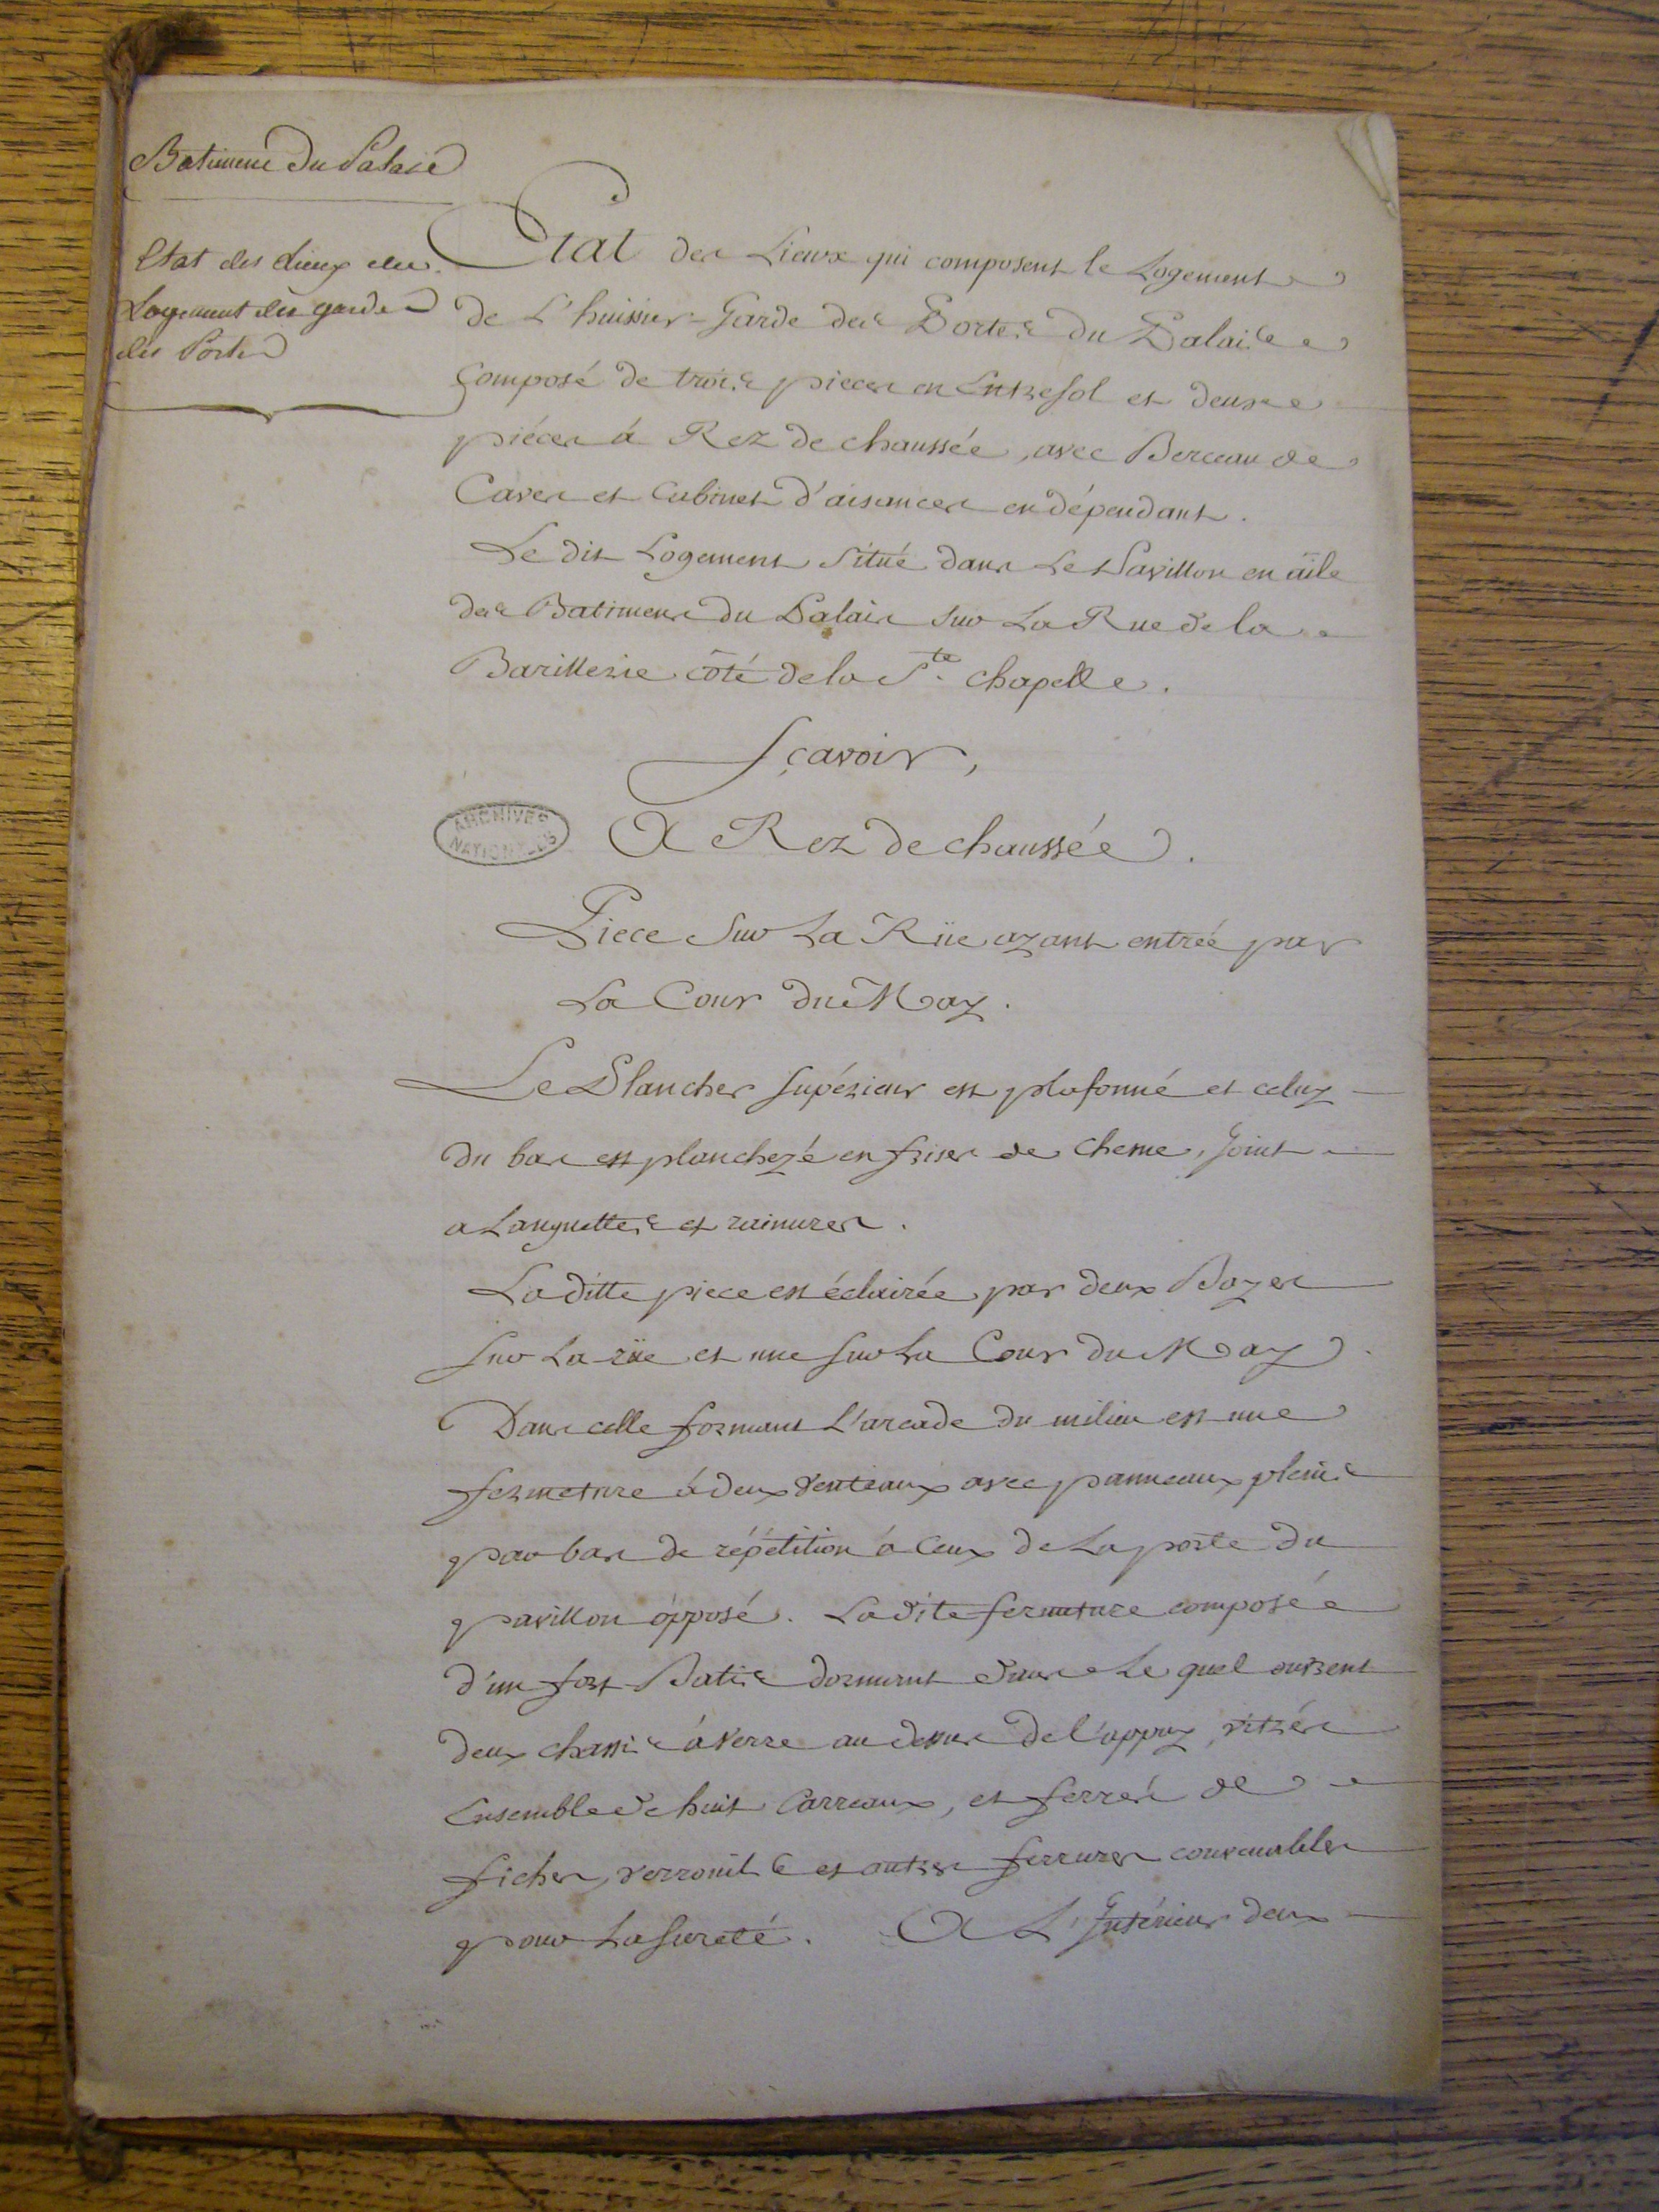 Batiment du Palais
Etat des lieux du
Logement des gardes
des Portes
Etat des Lieux qui composent le Logement
de L'huissier-Garde des Portes du Palais
Composé de trois pieces en Entresol et deux
piéces à Rez de chaussée, avec Berceau de
Caves et Cabinet d'aisances en dépendant.
Le dit Logement Situé dans Le Pavillon en aîle
des Batimens du Palais Sur La Rue de la
Barillerie côté de la Ste. Chapelle.
Sçavoir,
ARCHIVES NATIONALES
A Rez de chaussée.
Piece Sur La Rüe ayant entrée par
La Cour du May.
Le Plancher Supérieur est plafonné et celuy
du bas est plancheyé en frises de chesne, Joint
a Languettes et rainures.
La ditte piece est éclairée par deux Bayes
Sur La rüe et une Sur La Cour du May.
Dans celle formant L'arcade du milieu est une
fermeture à deux venteaux avec panneaux pleins
par bas de répétition à Ceux de La porte du
pavillon ópposé. La dite fermeture composée
d'un fort Batis dormant dans Le quel ouvrent
deux chassis à Verre au dessus de l'appuy, vitrés
Ensemble de huit Carreaux, et ferrés de
fiches, verrouils et autres ferrures convenables
pour La Sureté. A L'Intérieur deux